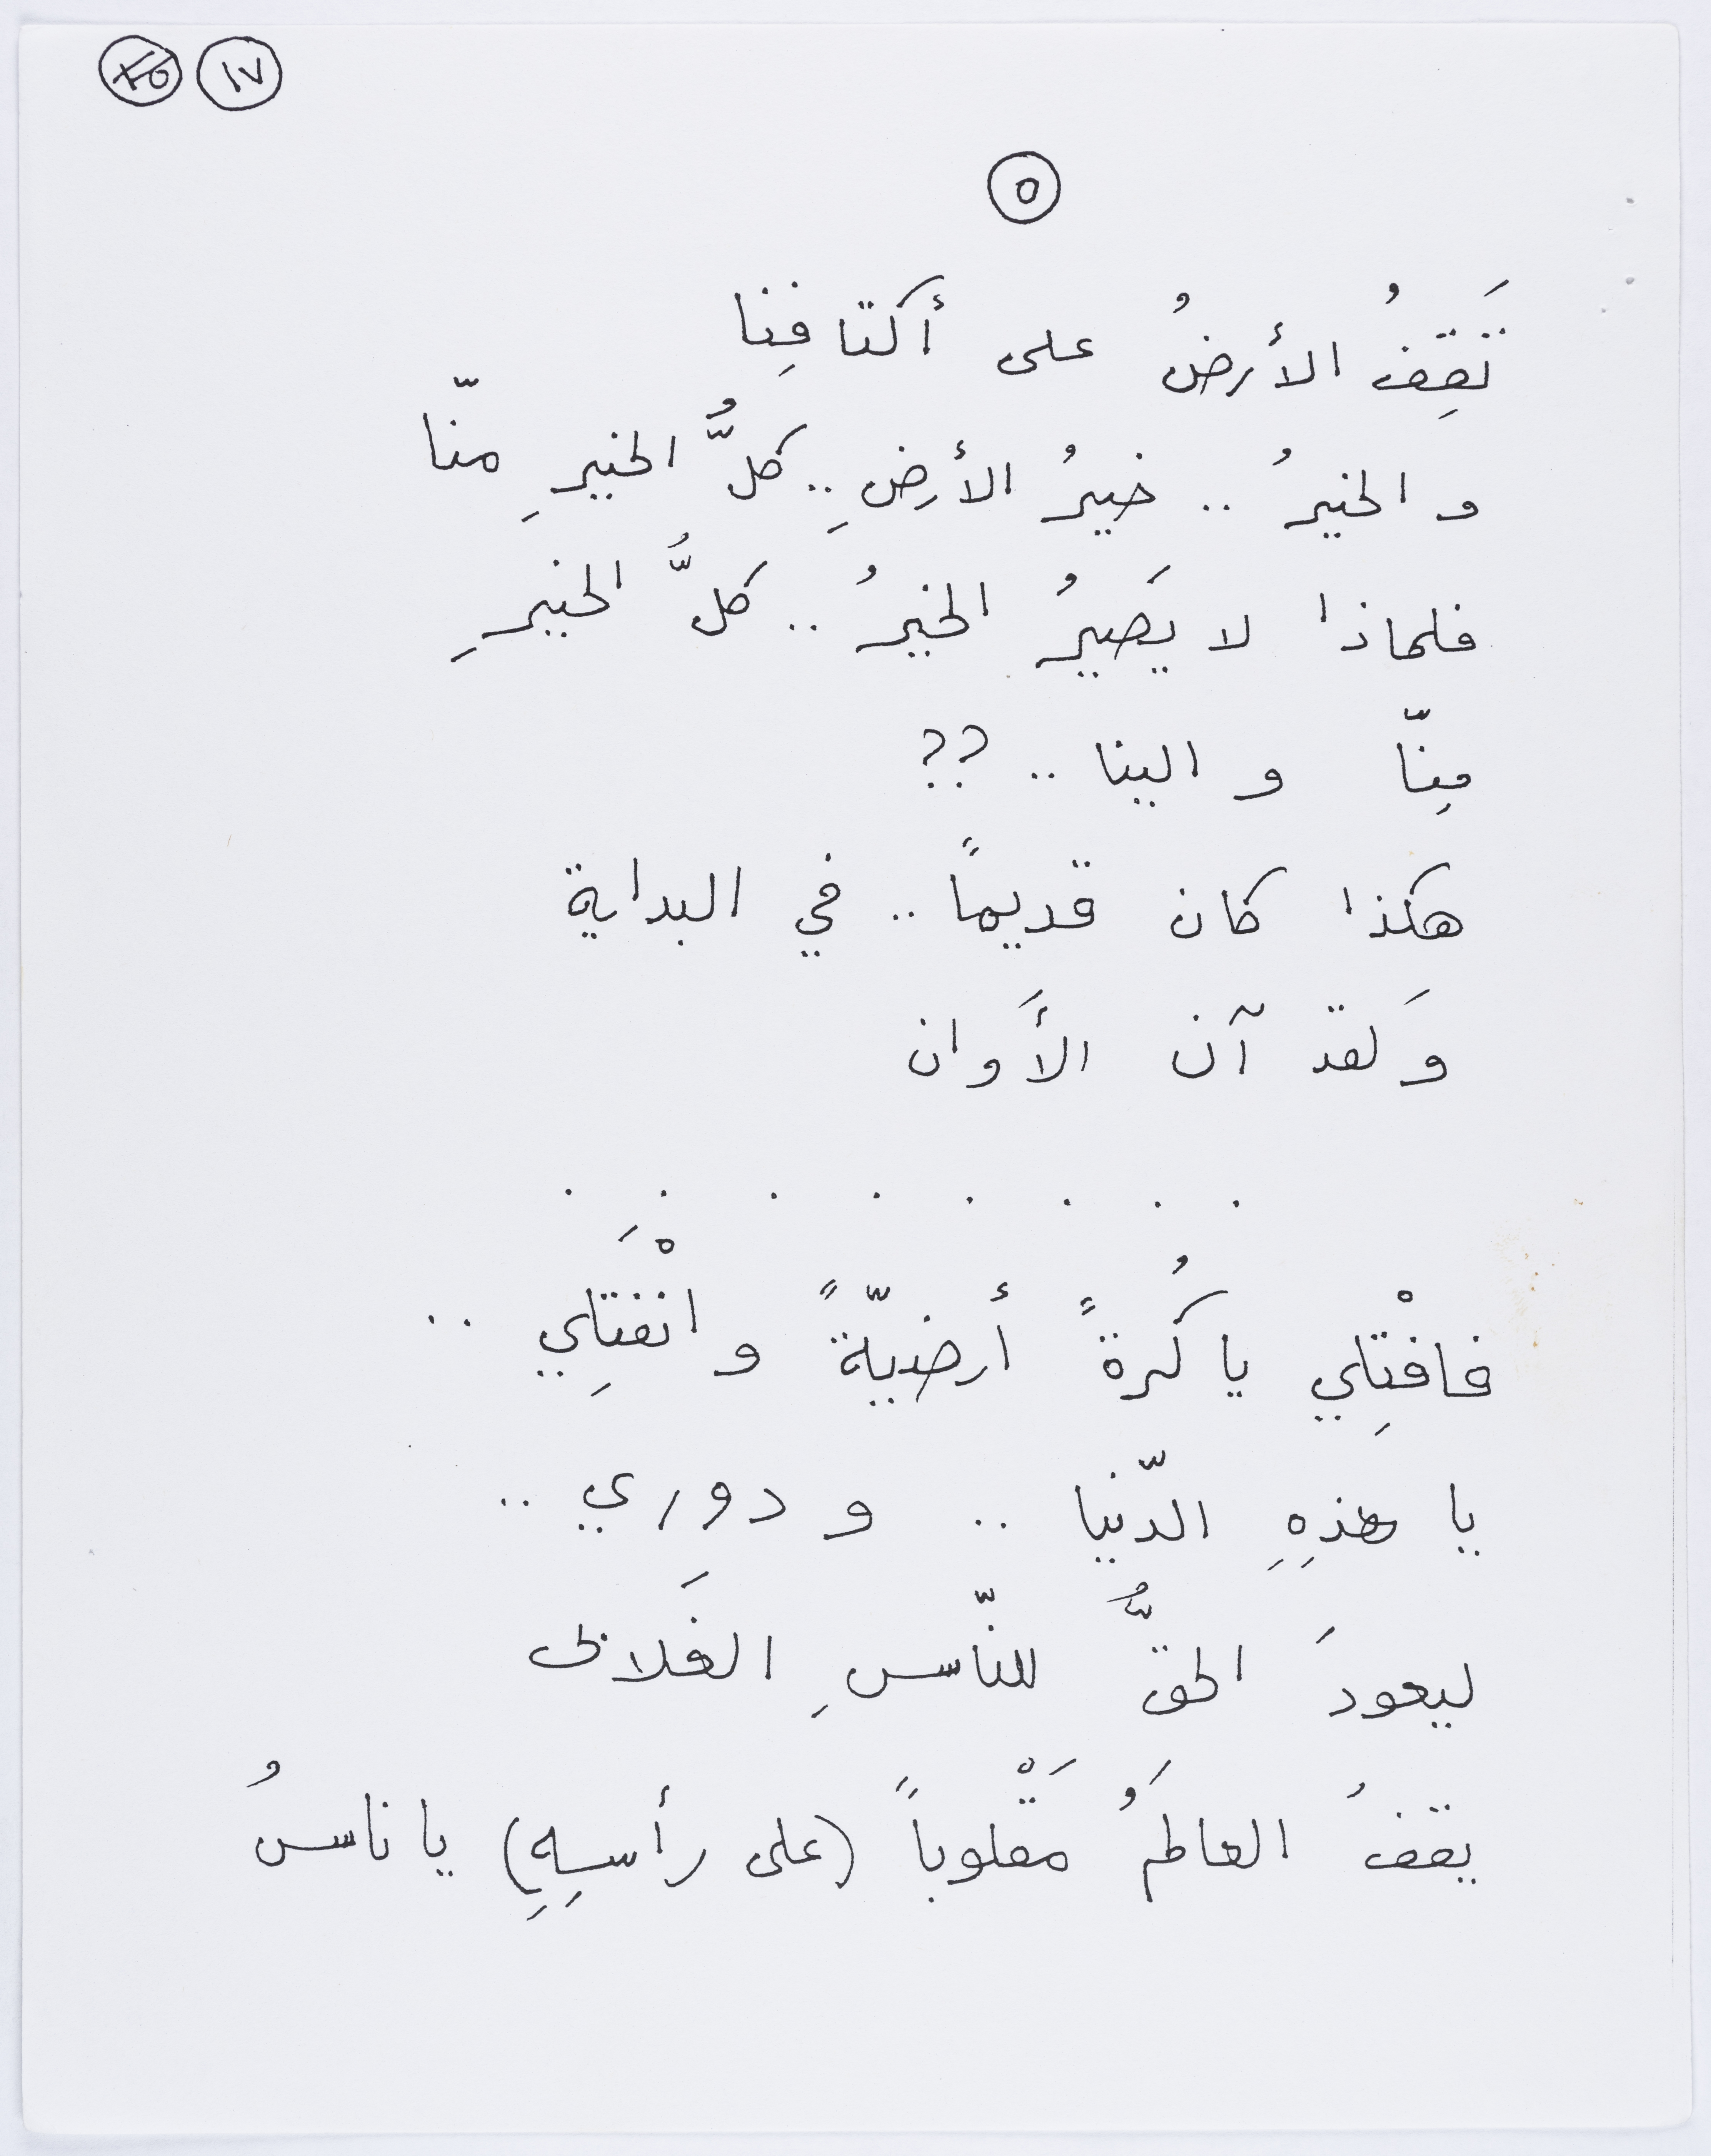 ١٧
٥
تَقِفُ الأرضُ على أكتافِنا
و الخيرُ .. خيرُ الأرضِ .. كلُّ الخيرِ منّا
فلماذا لا يَصيرُ الخيرُ .. كلُّ الخيرِ
مِنّا و الينا .. ??
هكذا كان قديماً .. في البداية
وَلقد آن الأَوان
. . . . . . . .
فافْتِلي يا كُرةً أرضيّةً و انْفَتِلي ..
يا هذِهِ الدّنيا .. و دوري ..
ليعودَ الحقُّ للنّاسِ الغَلابى
يقفُ العالَمُ مَقْلوباً (على رأسِهِ) يا ناسُ